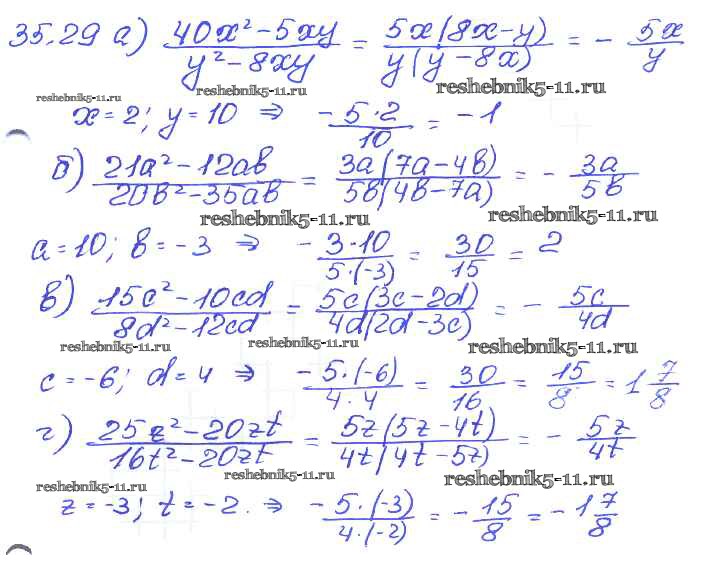 35.29 а) (40x² − 5xy)/(y² − 8xy) = 5x(8x−y)/y(y−8x) = − 5x/y
reshebnik5-11.ru reshebnik5-11.ru
reshebnik5-11.ru
x = 2; y = 10 ⇒ (−5·2)/10 = −1
б) (21a² − 12ab)/(20b² − 35ab) = 3a(7a − 4b)/5b(4b − 7a) = − 3a/5b
reshebnik5-11.ru reshebnik5-11.ru
a = 10; b = −3 ⇒ − 3·10/5·(−3) = 30/15 = 2
в) (15c² − 10cd)/(8d² − 12cd) = 5c(3c − 2d)/4d(2d − 3c) = − 5c/4d
reshebnik5-11.ru reshebnik5-11.ru reshebnik5-11.ru
c = −6; d = 4 ⇒ − 5·(−6)/4·4 = 30/16 = 15/8 = 1 7/8
г) (25z² − 20zt)/(16t² − 20zt) = 5z(5z − 4t)/4t(4t − 5z) = − 5z/4t
reshebnik5-11.ru reshebnik5-11.ru reshebnik5-11.ru
z = −3; t = −2. ⇒ − 5·(−3)/4·(−2) = − 15/8 = −1 7/8